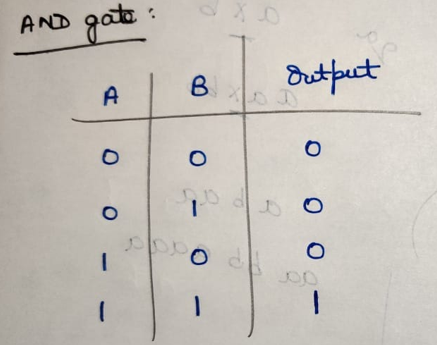 AND gate :
A B Output
0 0 0
0 1 0
1 0 0
1 1 1